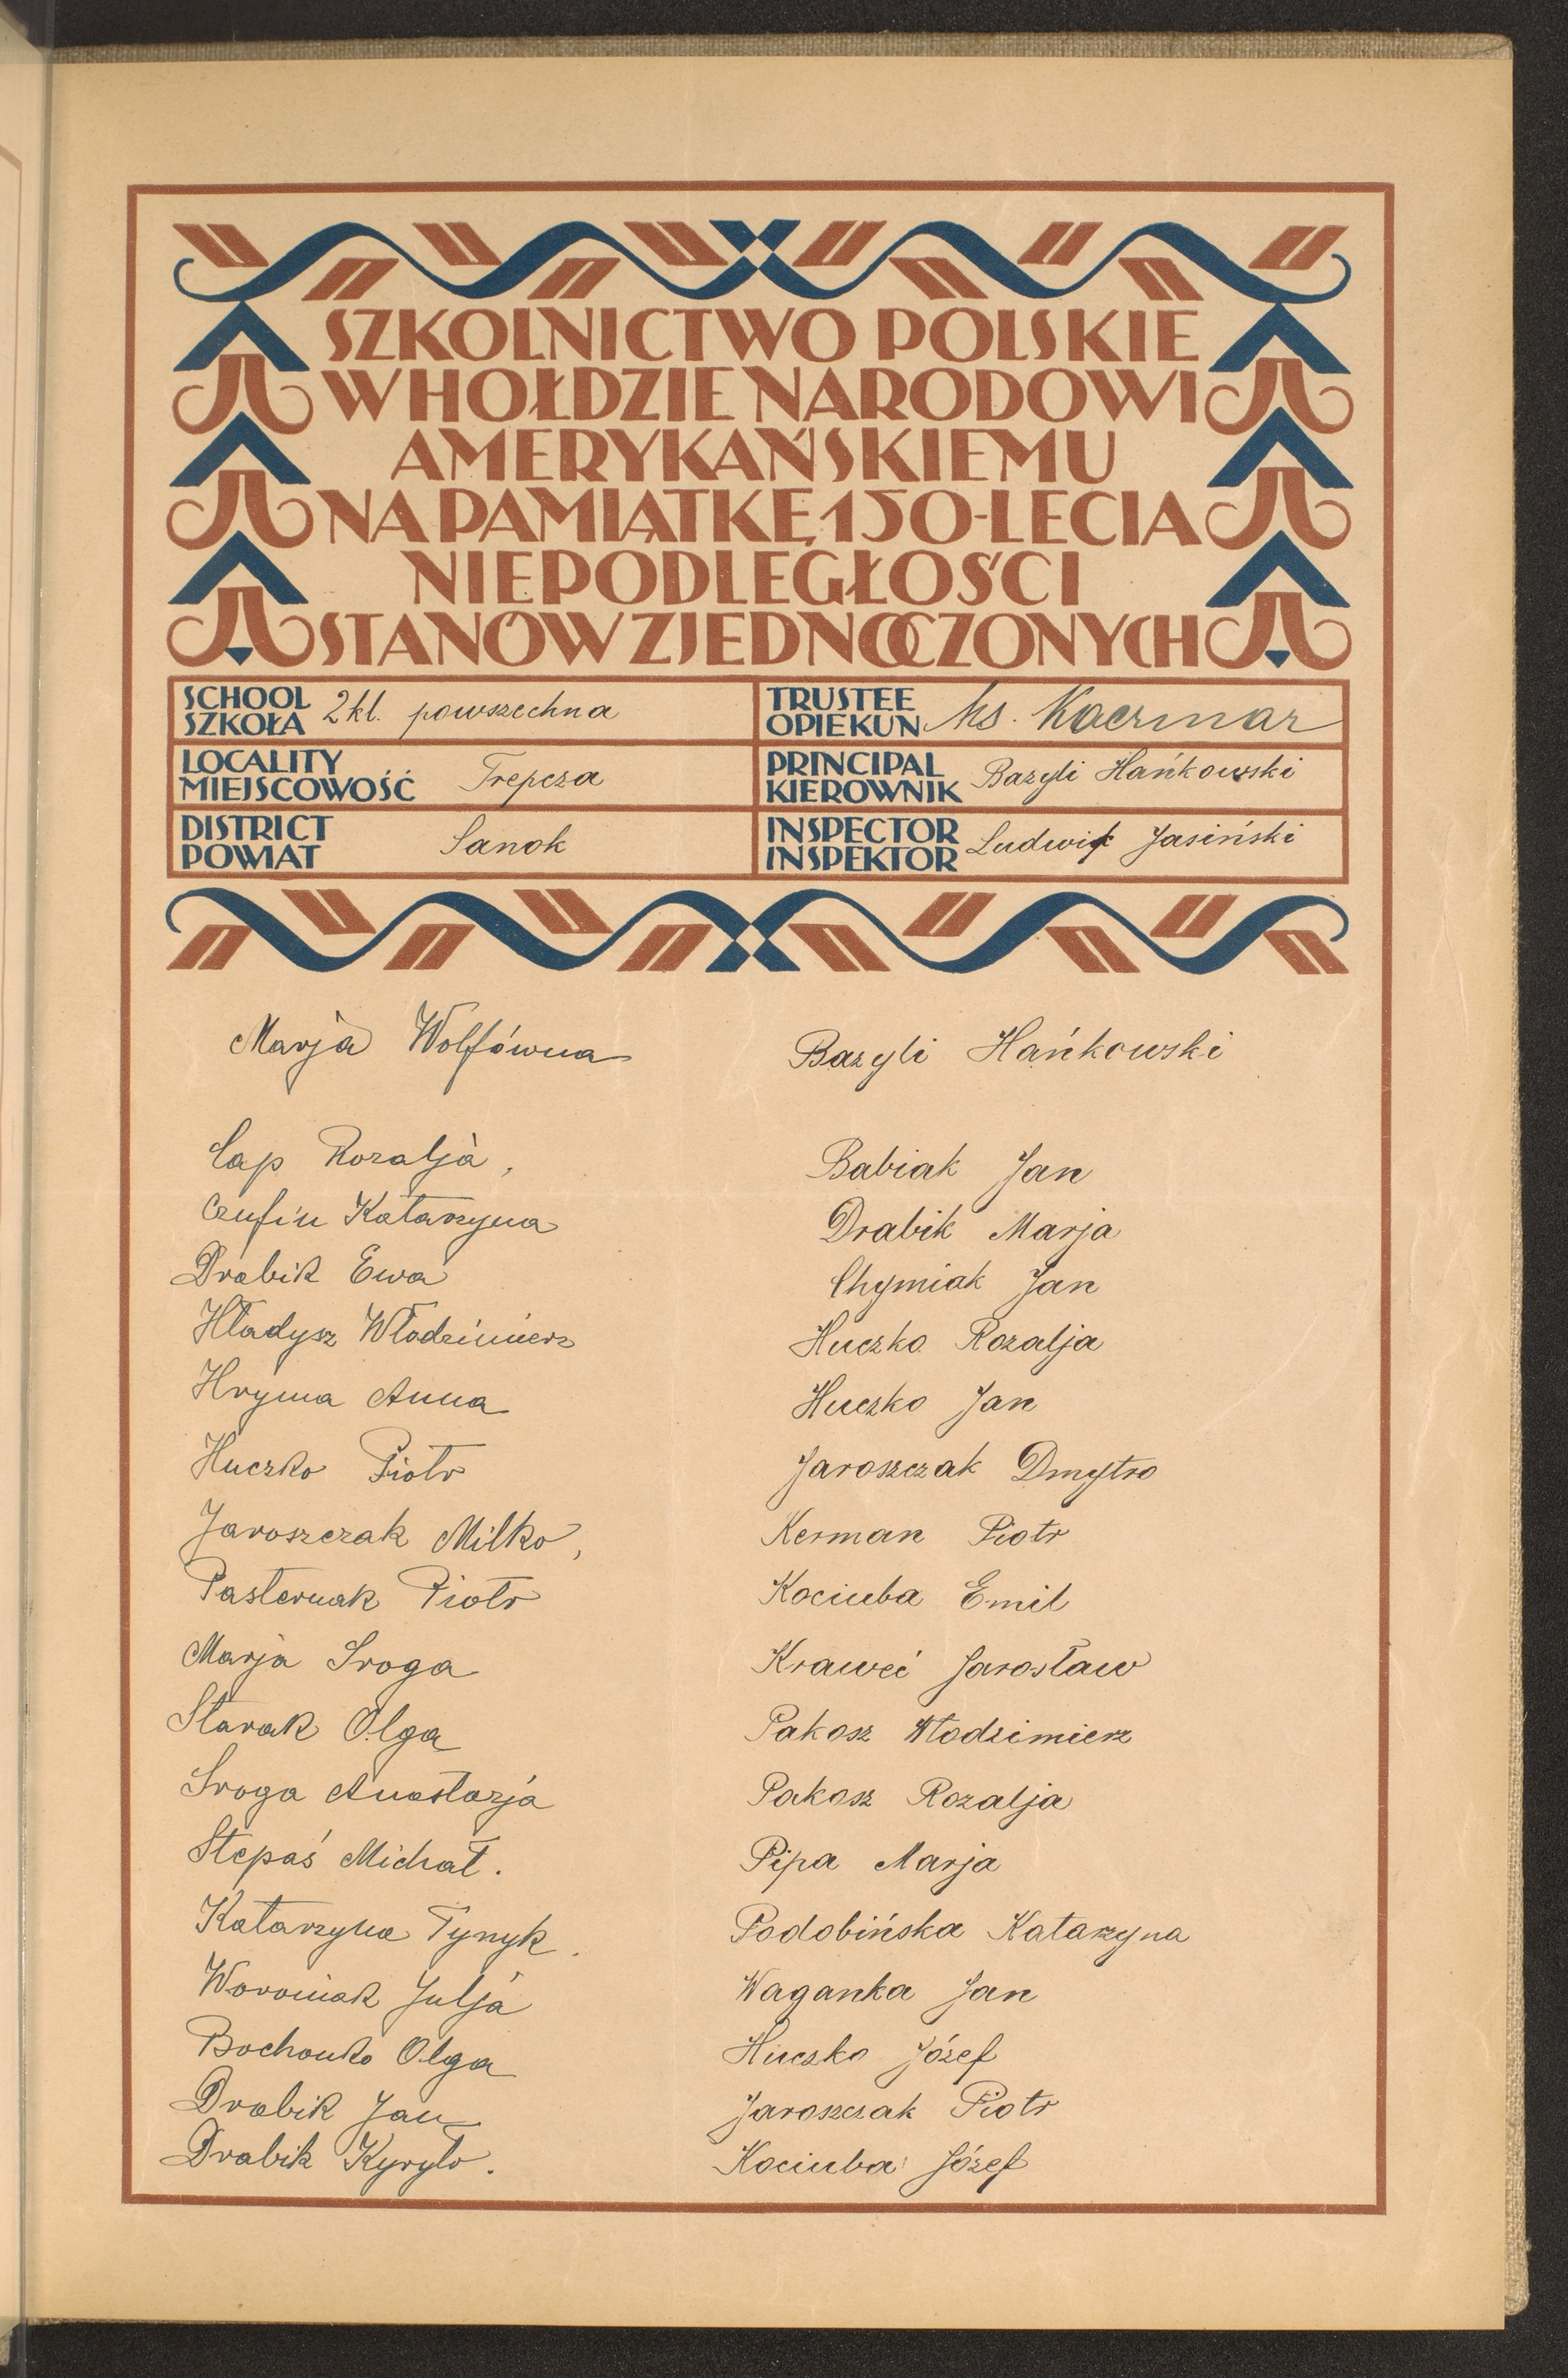 SZKOLNICTWO POLSKIE
W HOŁDZIE NARODOWI
AMERYKAŃSKIEMU
NA PAMIĄTKĘ 150-LECIA
NIEPODLEGŁOŚCI
STANÓW ZJEDNOCZONYCH
SCHOOL
SZKOŁA 2 kl. powszechna
LOCALITY
MIEJSCOWOŚĆ Trepcza
DISTRICT
POWIAT Sanok
TRUSTEE
OPIEKUN Ks. Kaczmar
PRINCIPAL
KIEROWNIK Bazyli Hańkowski
INSPECTOR
INSPEKTOR Ludwik Jasiński
Marja Wolfówna
Cap Rozalja,
Czufin Katarzyna
Drabik Ewa
Hładysz Włodzimierz
Hryma Anna
Huczko Piotr
Jaroszczak Milko,
Pasternak Piotr
Marja Sroga
Starak Olga
Sroga Anastazja
Stepaś Michał.
Katarzyna Tynyk.
Woroniak Julja
Bochonko Olga
Drabik Jan
Drabik Kyryło.
Bazyli Hańkowski
Babiak Jan
Drabik Marja
Chymiak Jan
Huczko Rozalja
Huczko Jan
Jaroszczak Dmytro
Kerman Piotr
Kociuba Emil
Kraweć Jarosław
Pakosz Włodzimierz
Pakosz Rozalja
Pipa Marja
Podobińska Katarzyna
Waganka Jan
Huczko Józef
Jaroszczak Piotr
Kociuba Józef